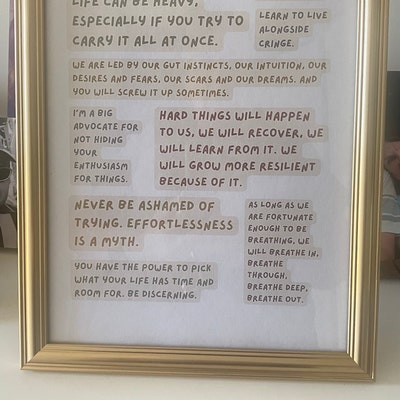 LIFE CAN BE HEAVY,
ESPECIALLY IF YOU TRY TO
CARRY IT ALL AT ONCE.
LEARN TO LIVE
ALONGSIDE
CRINGE.
WE ARE LED BY OUR GUT INSTINCTS, OUR INTUITION, OUR
DESIRES AND FEARS, OUR SCARS AND OUR DREAMS. AND
YOU WILL SCREW IT UP SOMETIMES.
I'M A BIG
ADVOCATE FOR
NOT HIDING
YOUR
ENTHUSIASM
FOR THINGS.
HARD THINGS WILL HAPPEN
TO US, WE WILL RECOVER, WE
WILL LEARN FROM IT. WE
WILL GROW MORE RESILIENT
BECAUSE OF IT.
NEVER BE ASHAMED OF
TRYING. EFFORTLESSNESS
IS A MYTH.
AS LONG AS WE
ARE FORTUNATE
ENOUGH TO BE
BREATHING, WE
WILL BREATHE IN,
BREATHE
THROUGH,
BREATHE DEEP,
BREATHE OUT.
YOU HAVE THE POWER TO PICK
WHAT YOUR LIFE HAS TIME AND
ROOM FOR. BE DISCERNING.